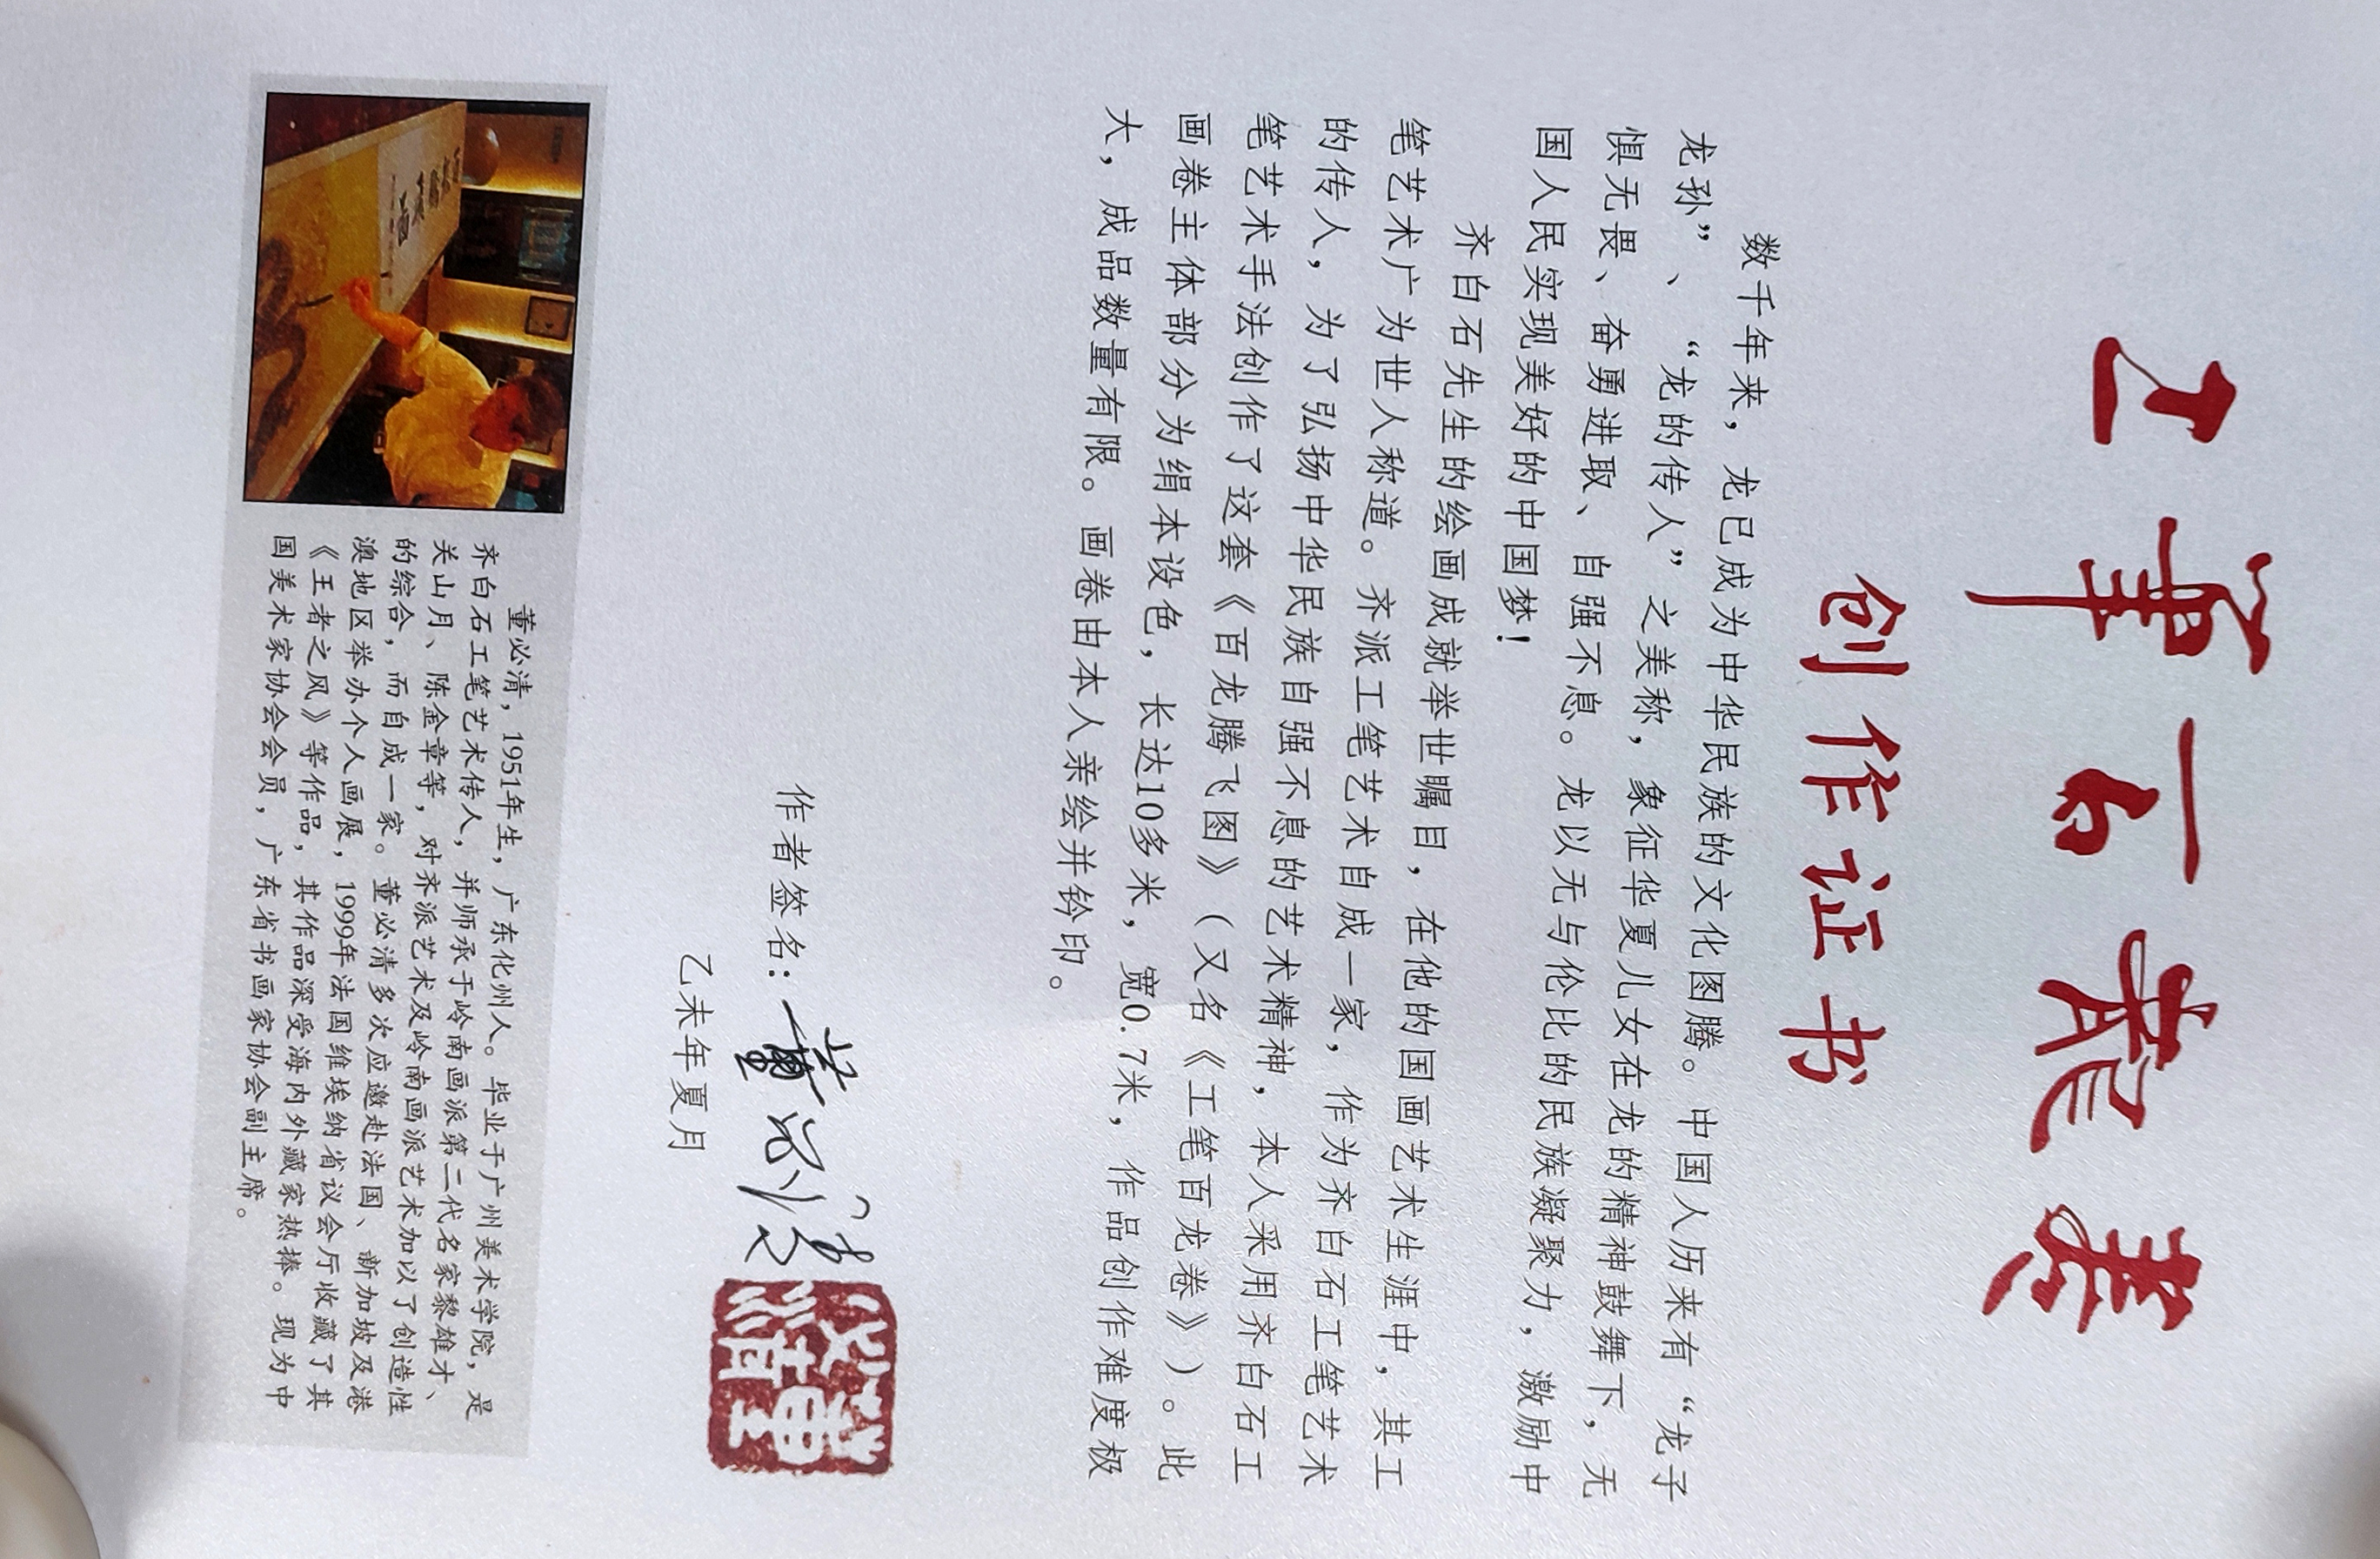 工笔百龙卷
创作证书
数千年来，龙已成为中华民族的文化图腾。中国人历来有“龙子
龙孙”、“龙的传人”之美称，象征华夏儿女在龙的精神鼓舞下，无
惧无畏、奋勇进取、自强不息。龙以无与伦比的民族凝聚力，激励中
国人民实现美好的中国梦！
齐白石先生的绘画成就举世瞩目，在他的国画艺术生涯中，其工
笔艺术广为世人称道。齐派工笔艺术自成一家，作为齐白石工笔艺术
的传人，为了弘扬中华民族自强不息的艺术精神，本人采用齐白石工
笔艺术手法创作了这套《百龙腾飞图》（又名《工笔百龙卷》）。此
画卷主体部分为绢本设色，长达10多米，宽0.7米，作品创作难度极
大，成品数量有限。画卷由本人亲绘并钤印。
作者签名：董必清
乙未年夏月
董必清，1951年生，广东化州人。毕业于广州美术学院，是
齐白石工笔艺术传人，并师承于岭南画派第二代名家黎雄才、
关山月、陈金章等，对齐派艺术及岭南画派艺术加以了创造性
的综合，而自成一家。董必清多次应邀赴法国、新加坡及港
澳地区举办个人画展，1999年法国维埃纳省议会厅收藏了其
《王者之风》等作品，其作品深受海内外藏家热捧。现为中
国美术家协会会员，广东省书画家协会副主席。